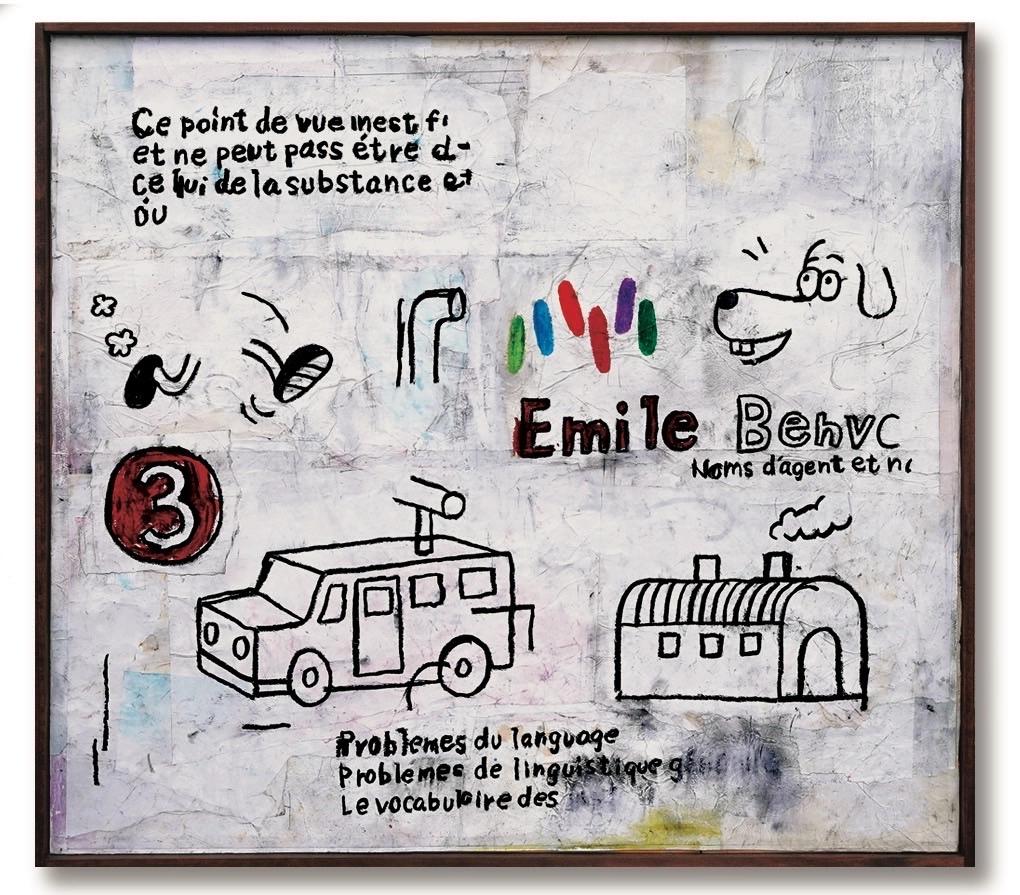 Ce point de vue inest fi
et ne peut pass étre d-
ce lui de la substance et
ou
Emile Benvc
Noms d'agent et nc
3
Problemes du language
Problemes de linguistique générale
Le vocabulaire des